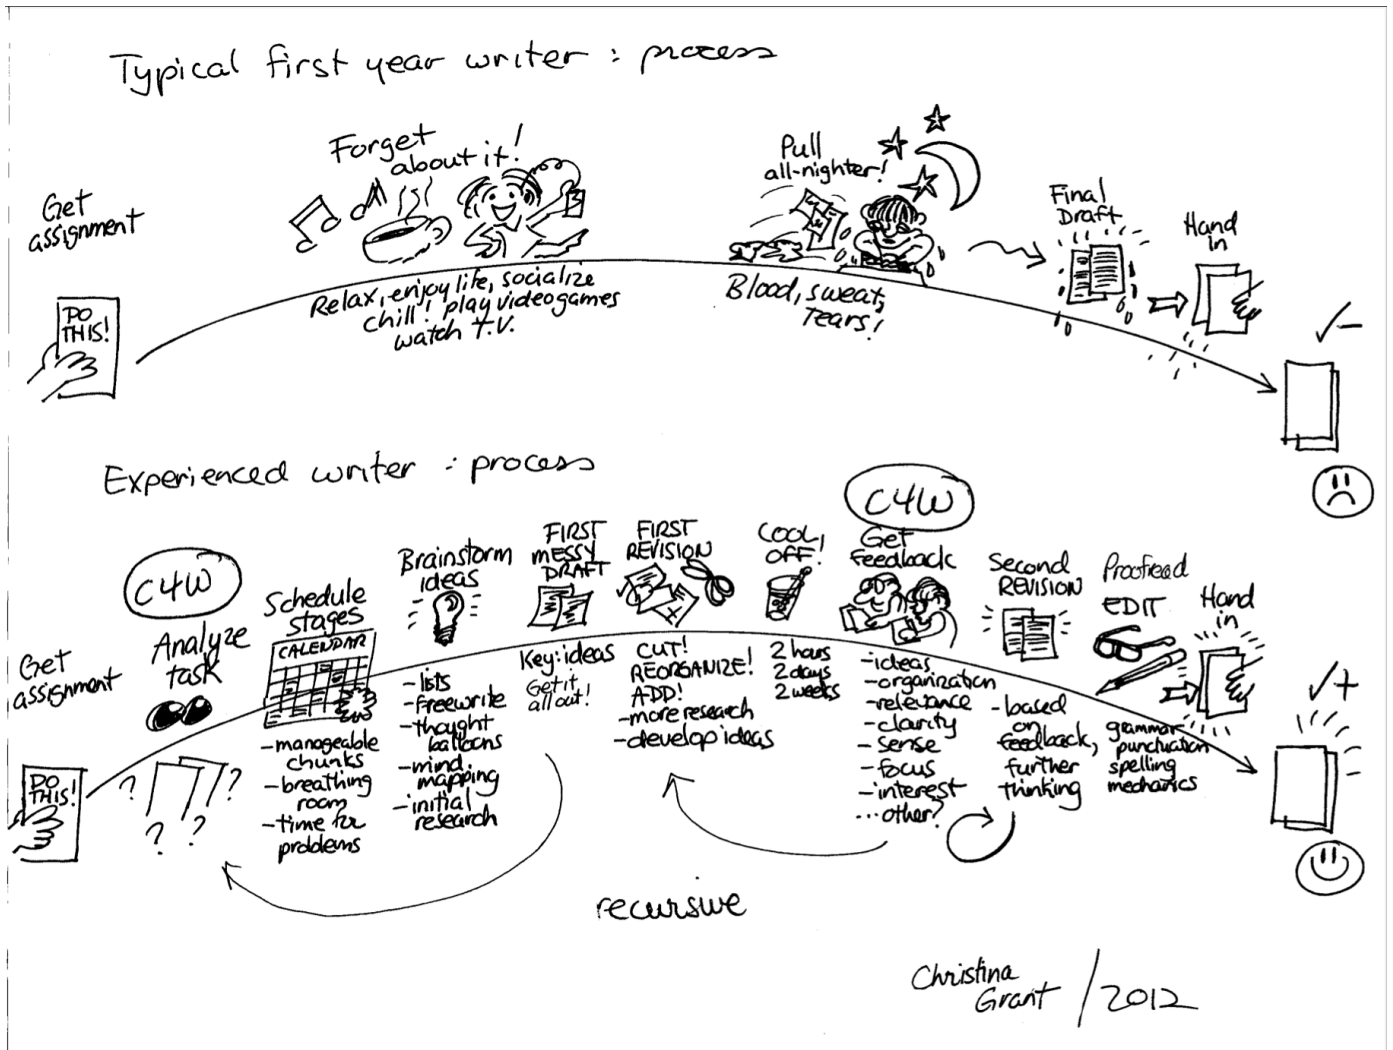 Typical first year writer : process
Get
assignment
DO
THIS!
Forget
about it!
Relax, enjoy life, socialize
chill! play videogames
watch T.V.
Pull
all-nighter!
Blood, sweat,
tears!
Final
Draft
Hand
in
✓-
Experienced writer : process
Get
assignment
DO
THIS!
C4W
Analyze
task
? ?
? ?
Schedule
stages
CALENDAR
-manageable
chunks
-breathing
room
-time for
problems
Brainstorm
ideas
-lists
-freewrite
-thought
balloons
-mind
mapping
-initial
research
FIRST
MESSY
DRAFT
Key: ideas
Get it
all out!
FIRST
REVISION
CUT!
REORGANIZE!
ADD!
-more research
-develop ideas
COOL
OFF!
2 hours
2 days
2 weeks
C4W
Get
feedback
-ideas
-organization
-relevance
-clarity
-sense
-focus
-interest
...other?
Second
REVISION
-based
on
feedback,
further
thinking
Proofread
EDIT
grammar
punctuation
spelling
mechanics
Hand
in
✓+
recursive
Christina
Grant / 2012